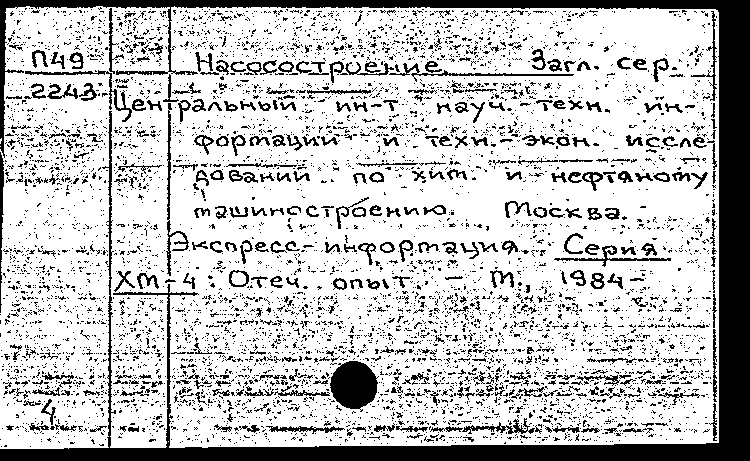 П49 Насосостроение. Загл. сер.
2243 Центральный ин-т науч.-техн. ин-
формации и техн.-экон. иссле-
дований по хим. и нефтяному
машиностроению. Москва.
Экспресс-информация. Серия
ХМ-4: Отеч. опыт. - М., 1984-
4